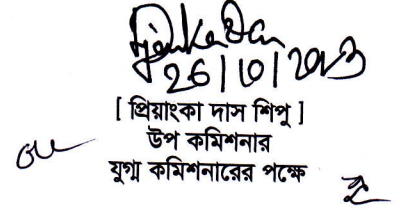 26/10/2023
[ প্রিয়াংকা দাস শিপু ]
উপ কমিশনার
যুগ্ম কমিশনারের পক্ষে